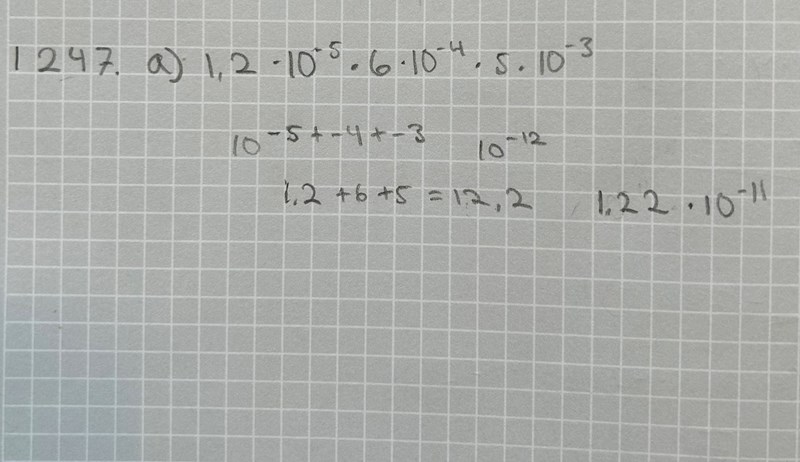 1247. a) 1,2 · 10^-5 · 6 · 10^-4 · 5 · 10^-3
10^-5+-4+-3 10^-12
1,2 + 6 + 5 = 12,2 1,22 · 10^-11